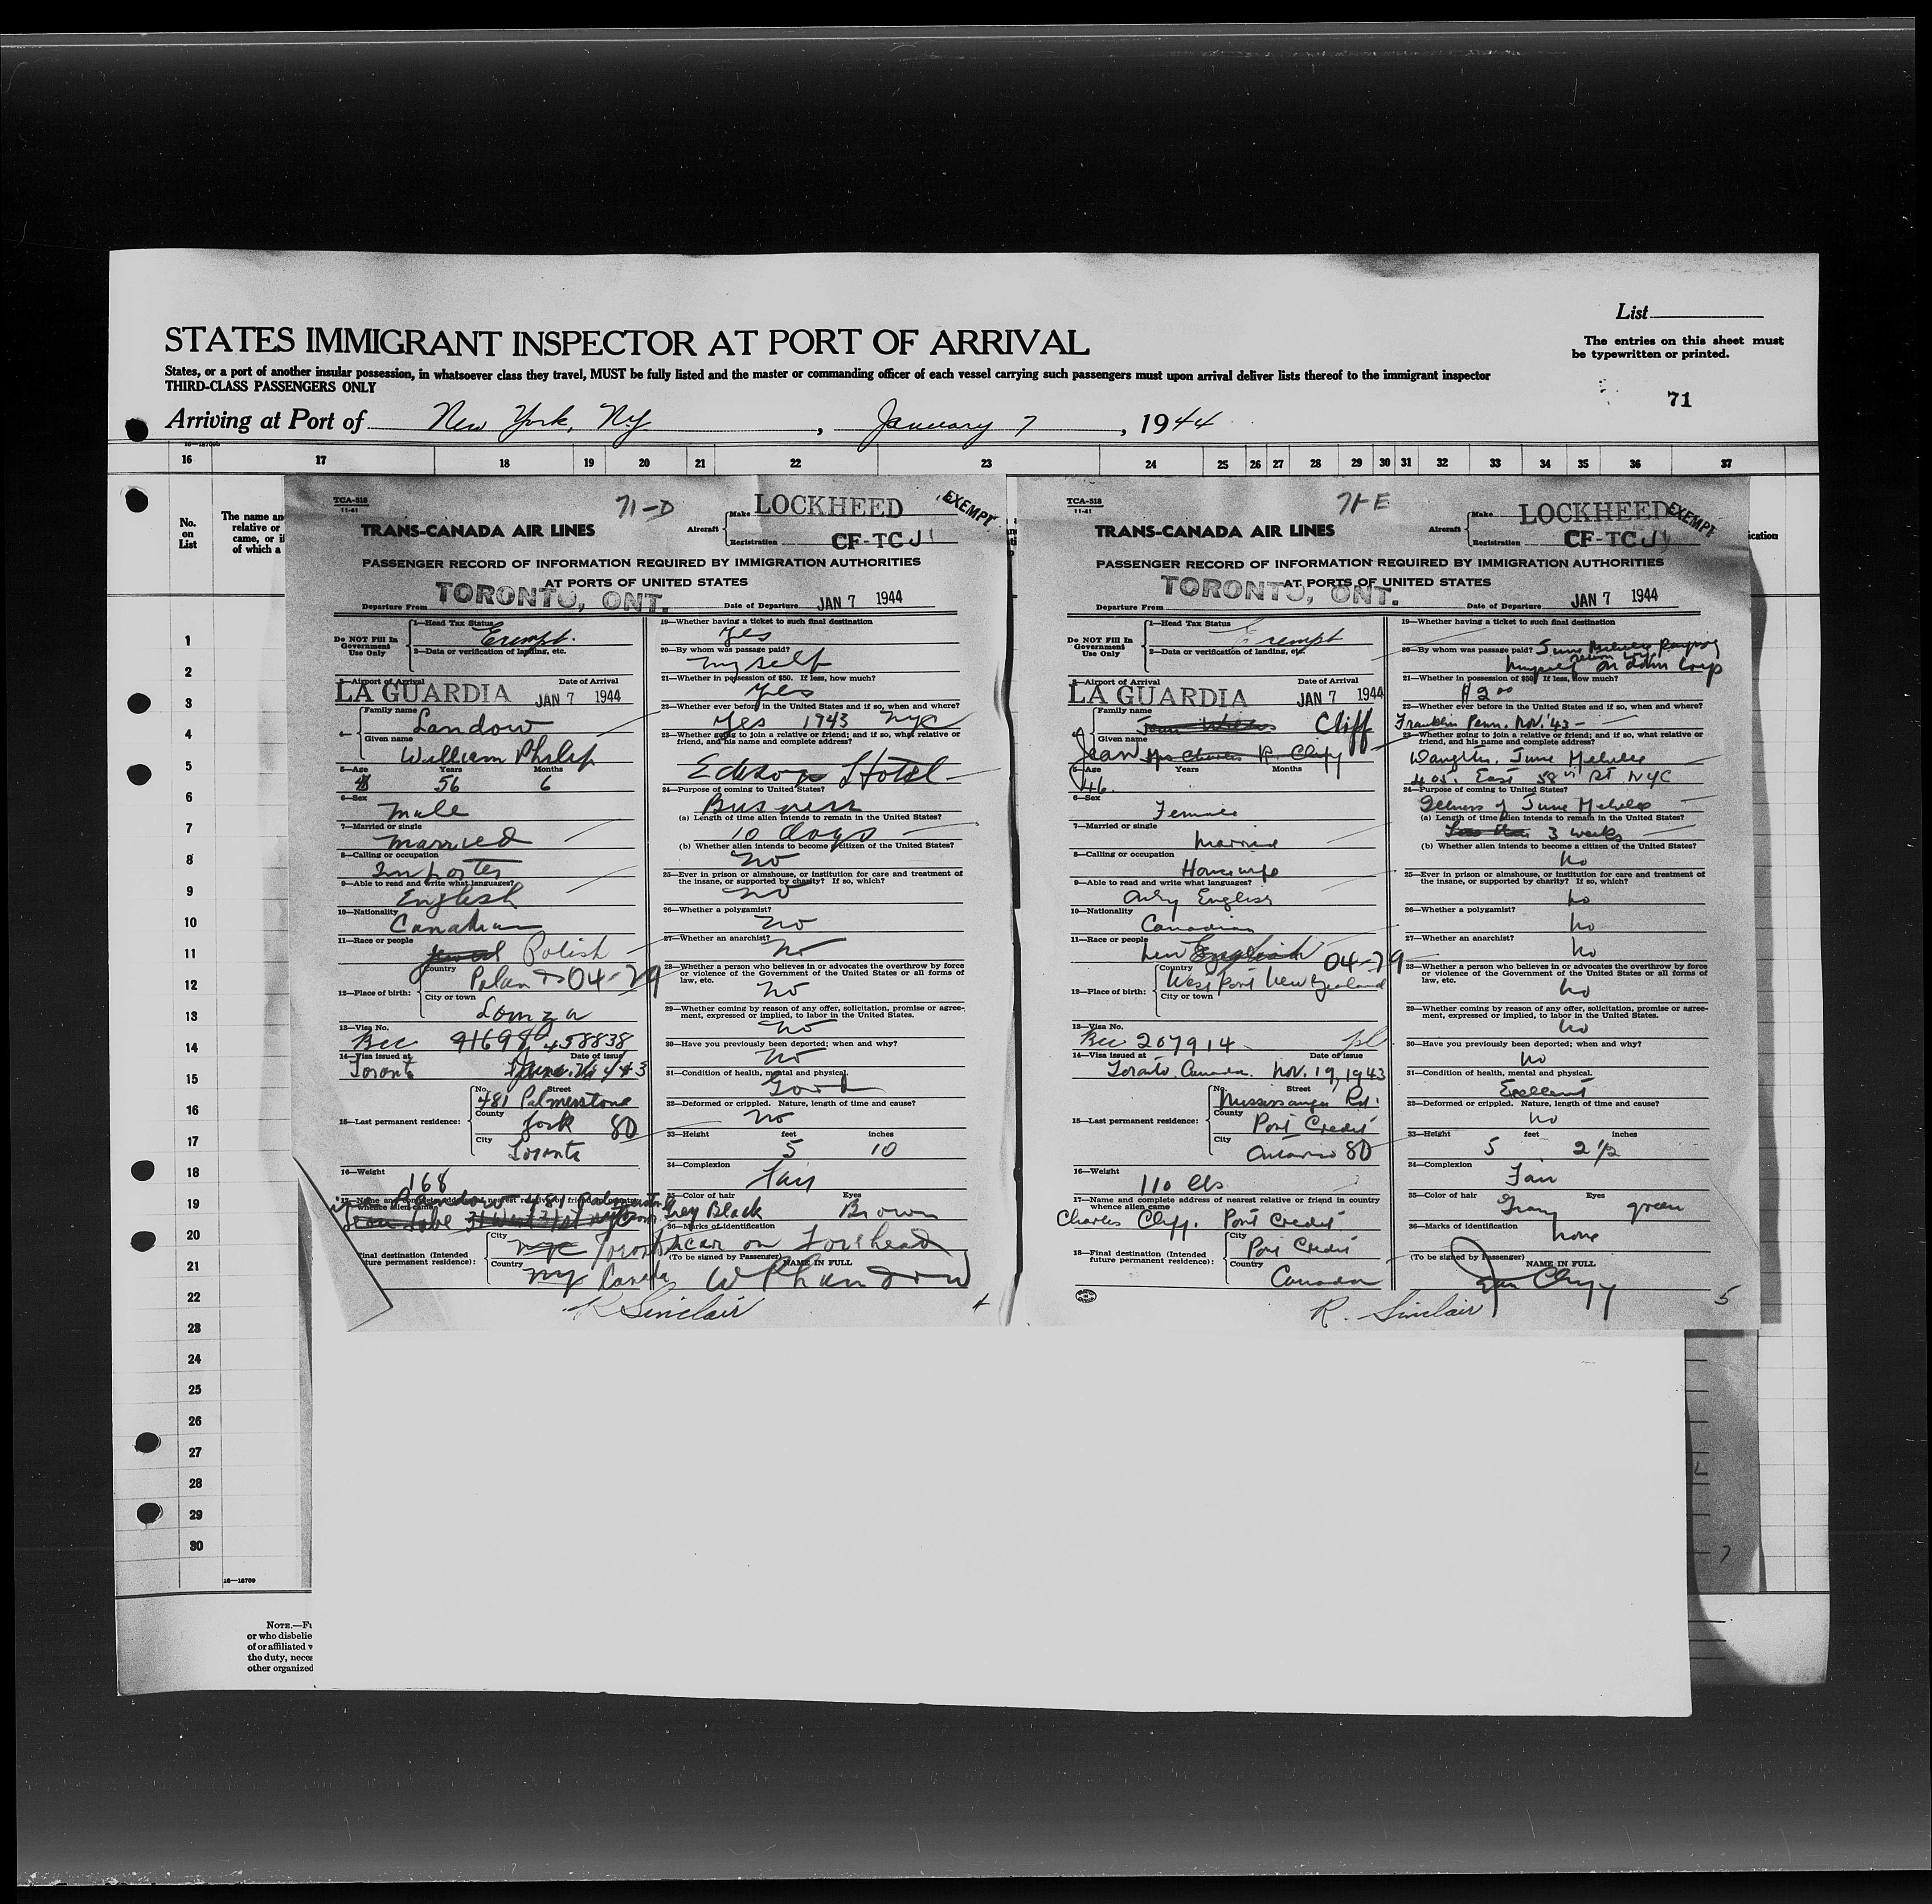 List
STATES IMMIGRANT INSPECTOR AT PORT OF ARRIVAL
The entries on this sheet must
be typewritten or printed.
States, or a port of another insular possession, in whatsoever class they travel, MUST be fully listed and the master or commanding officer of each vessel carrying such passengers must upon arrival deliver lists thereof to the immigrant inspector
THIRD-CLASS PASSENGERS ONLY
71
Arriving at Port of New York, N.Y. , January 7 , 1944
16 17 18 19 20 21 22 23 24 25 26 27 28 29 30 31 32 33 34 35 36 37
No.
on
List
The name an
relative or
came, or if
of which a
ication
1
2
3
4
5
6
7
8
9
10
11
12
13
14
15
16
17
18
19
20
21
22
23
24
25
26
27
28
29
30
16—18709
NOTE.—Fu
or who disbelie
of or affiliated w
the duty, neces
other organized
TCA-518
11-41
71-D
Make LOCKHEED
EXEMPT
TRANS-CANADA AIR LINES
Aircraft
Registration CF-TCJ
PASSENGER RECORD OF INFORMATION REQUIRED BY IMMIGRATION AUTHORITIES
AT PORTS OF UNITED STATES
Departure From TORONTO, ONT.
Date of Departure JAN 7 1944
Do NOT Fill In
Government
Use Only
1—Head Tax Status
Exempt.
2—Data or verification of landing, etc.
3—Airport of Arrival Date of Arrival
LA GUARDIA JAN 7 1944
4—
Family name
Landow
Given name
William Philip
5—Age Years Months
56 6
6—Sex
Male
7—Married or single
Married
8—Calling or occupation
Importer
9—Able to read and write what languages?
English
10—Nationality
Canadian
11—Race or people
Polish
12—Place of birth:
Country
Poland 04-79
City or town
Lomza
13—Visa No.
Bcc 91698 458838
14—Visa issued at Date of issue
Toronto
15—Last permanent residence:
No. Street
481 Palmerstone
County
York 80
City
Toronto
16—Weight
168
17—Name and complete address of nearest relative or friend in country
whence alien came
Landow 481 Palmerston
Final destination (Intended
future permanent residence):
City
NYC Toronto
Country
NY Canada
19—Whether having a ticket to such final destination
Yes
20—By whom was passage paid?
myself
21—Whether in possession of $50. If less, how much?
Yes
22—Whether ever before in the United States and if so, when and where?
Yes 1943 NYC
23—Whether going to join a relative or friend; and if so, what relative or
friend, and his name and complete address?
Edison Hotel
24—Purpose of coming to United States?
Business
(a) Length of time alien intends to remain in the United States?
10 days
(b) Whether alien intends to become a citizen of the United States?
No
25—Ever in prison or almshouse, or institution for care and treatment of
the insane, or supported by charity? If so, which?
No
26—Whether a polygamist?
No
27—Whether an anarchist?
No
28—Whether a person who believes in or advocates the overthrow by force
or violence of the Government of the United States or all forms of
law, etc.
No
29—Whether coming by reason of any offer, solicitation, promise or agree-
ment, expressed or implied, to labor in the United States.
No
30—Have you previously been deported; when and why?
No
31—Condition of health, mental and physical.
Good
32—Deformed or crippled. Nature, length of time and cause?
No
33—Height feet inches
5 10
34—Complexion
Fair
35—Color of hair Eyes
Grey Black Brown
36—Marks of identification
Scar on Forehead
(To be signed by Passenger) NAME IN FULL
W Ph Landow
R Sinclair
4
TCA-518
11-41
71-E
Make LOCKHEED
EXEMPT
TRANS-CANADA AIR LINES
Aircraft
Registration CF-TCJ
PASSENGER RECORD OF INFORMATION REQUIRED BY IMMIGRATION AUTHORITIES
AT PORTS OF UNITED STATES
Departure From TORONTO, ONT.
Date of Departure JAN 7 1944
Do NOT Fill In
Government
Use Only
1—Head Tax Status
Exempt
2—Data or verification of landing, etc.
3—Airport of Arrival Date of Arrival
LA GUARDIA JAN 7 1944
4—
Family name
Cliff
Given name
Jean Mrs Charles R. Cliff
5—Age Years Months
46
6—Sex
Female
7—Married or single
Married
8—Calling or occupation
Housewife
9—Able to read and write what languages?
Only English
10—Nationality
Canadian
11—Race or people
English 04-79
12—Place of birth:
Country
West Port New Zealand
City or town
13—Visa No.
Bcc 207914
14—Visa issued at Date of issue
Toronto, Canada. Nov. 19, 1943
15—Last permanent residence:
No. Street
Mississauga Rd.
County
Port Credit
City
Ontario 80
16—Weight
110 lbs
17—Name and complete address of nearest relative or friend in country
whence alien came
Charles Cliff. Port Credit
18—Final destination (Intended
future permanent residence):
City
Port Credit
Country
Canada
19—Whether having a ticket to such final destination
20—By whom was passage paid?
21—Whether in possession of $50. If less, how much?
$2.00
22—Whether ever before in the United States and if so, when and where?
Franklin Penn. Nov. '43
23—Whether going to join a relative or friend; and if so, what relative or
friend, and his name and complete address?
Daughter. June
405. East 58th St NYC
24—Purpose of coming to United States?
Illness of June
(a) Length of time alien intends to remain in the United States?
3 weeks
(b) Whether alien intends to become a citizen of the United States?
No
25—Ever in prison or almshouse, or institution for care and treatment of
the insane, or supported by charity? If so, which?
No
26—Whether a polygamist?
No
27—Whether an anarchist?
No
28—Whether a person who believes in or advocates the overthrow by force
or violence of the Government of the United States or all forms of
law, etc.
No
29—Whether coming by reason of any offer, solicitation, promise or agree-
ment, expressed or implied, to labor in the United States.
No
30—Have you previously been deported; when and why?
No
31—Condition of health, mental and physical.
Excellent
32—Deformed or crippled. Nature, length of time and cause?
No
33—Height feet inches
5 2 1/2
34—Complexion
Fair
35—Color of hair Eyes
Gray green
36—Marks of identification
None
(To be signed by Passenger) NAME IN FULL
Jean Cliff
R. Sinclair
5